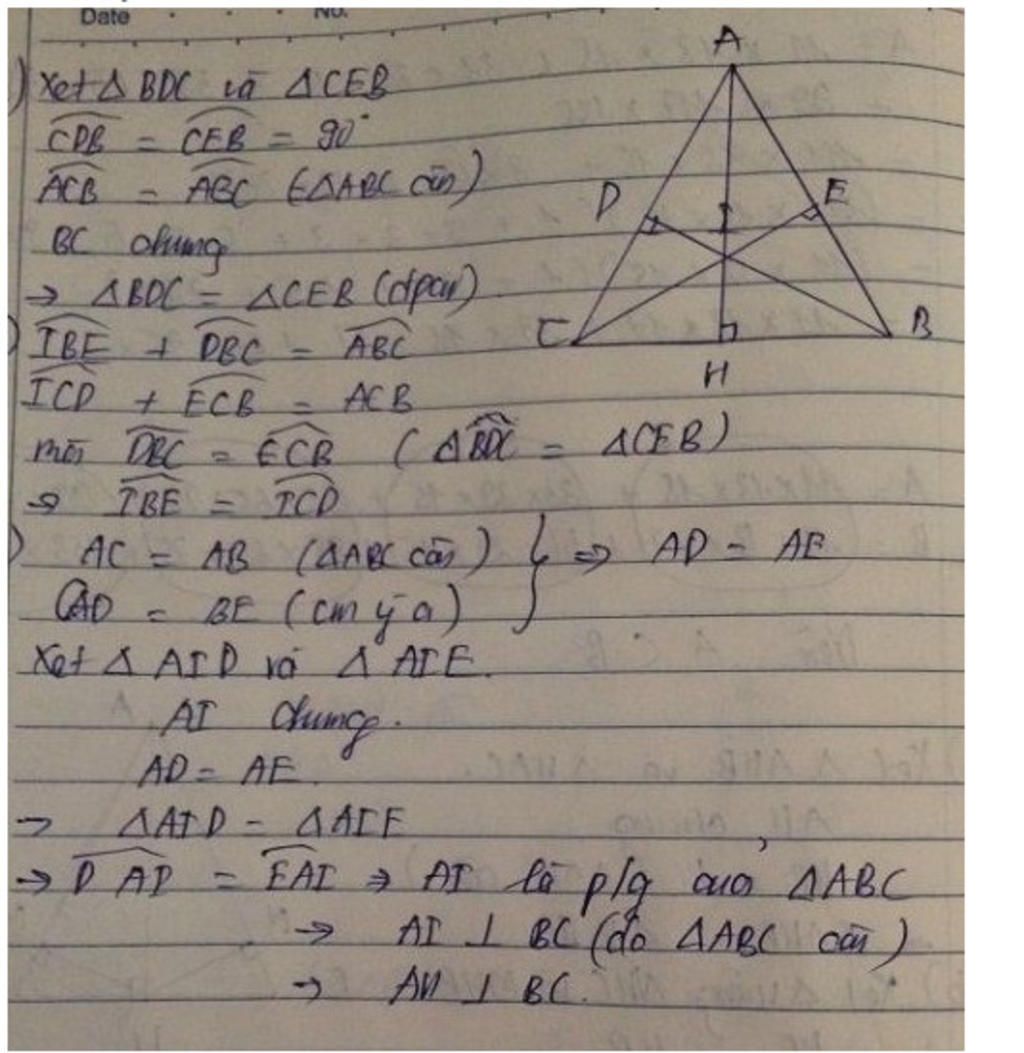 Date No.
) Xét Δ BDC và ΔCEB
CDB = CEB = 90°
ACB = ABC (ΔABC cân)
BC chung
→ ΔBDC = ΔCEB (đpcm)
) IBE + DBC = ABC
ICD + ECB = ACB
mà DBC = ECB (ΔBDC = ΔCEB)
→ IBE = ICD
) AC = AB (ΔABC cân)
CD = BE (cm ý a)
} => AD = AE
Xét Δ AID và Δ AIE.
AI chung.
AD = AE.
→ ΔAID = ΔAIE
→ DAI = EAI => AI là p/g của ΔABC
→ AI ⊥ BC (do ΔABC cân)
→ AH ⊥ BC.
A
D
I
E
C
B
H